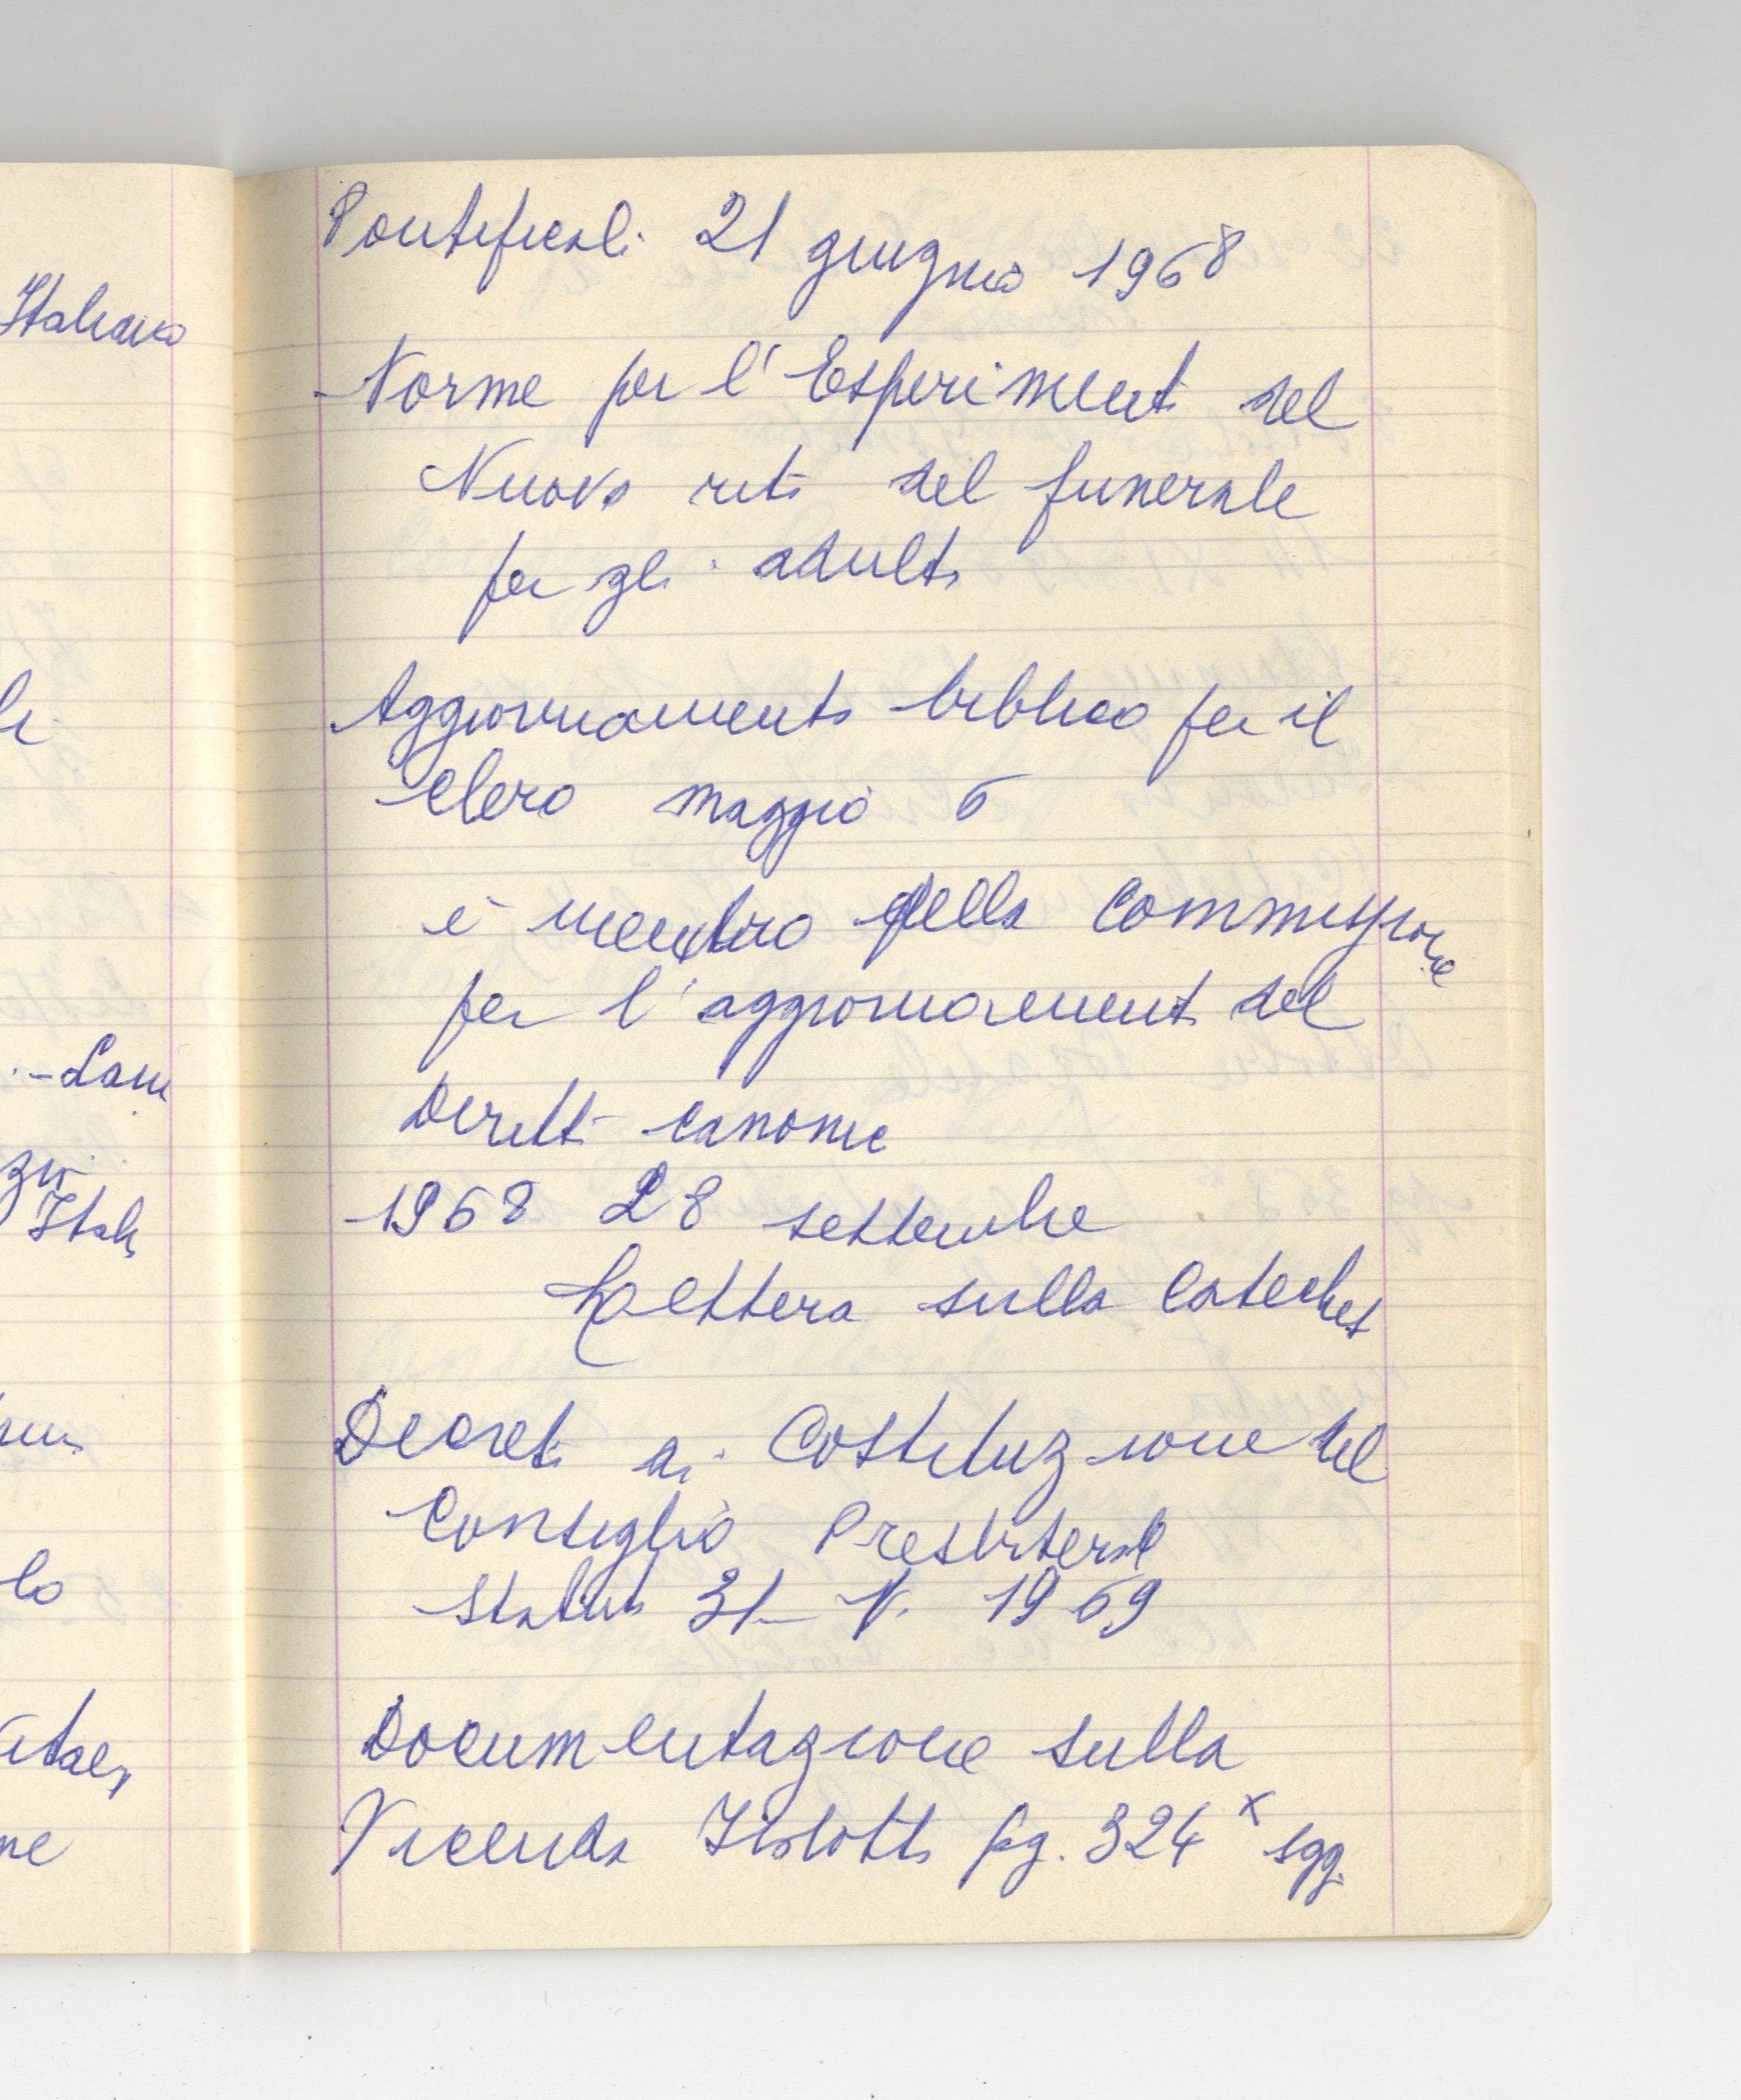 Italiano
Lam
Pontificali 21 giugno 1968
Norme per l'Esperimento del
Nuovo rito del funerale
per gli adulti
Aggiornamento biblico per il
Clero maggio 6
è membro della Commissione
per l'aggiornamento del
Diritto canonic
1968 28 settembre
Lettera sulla Cateches
Decreto di Costituzione del
Consiglio Presbiteral
Statuto 31 V. 1969
Documentazione sulla
Vicenda pg. 324 x sgg.